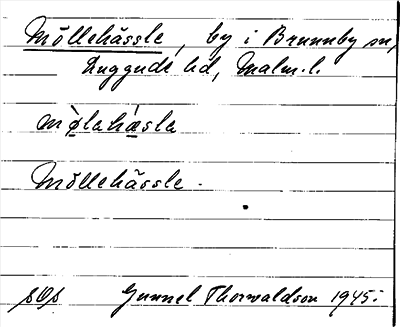 Möllehässle, by i Brunnby sn,
Luggude hd, Malm. l.
mø̀lahásla
Möllehässle.
sOs Gunnel Thorwaldson 1945.